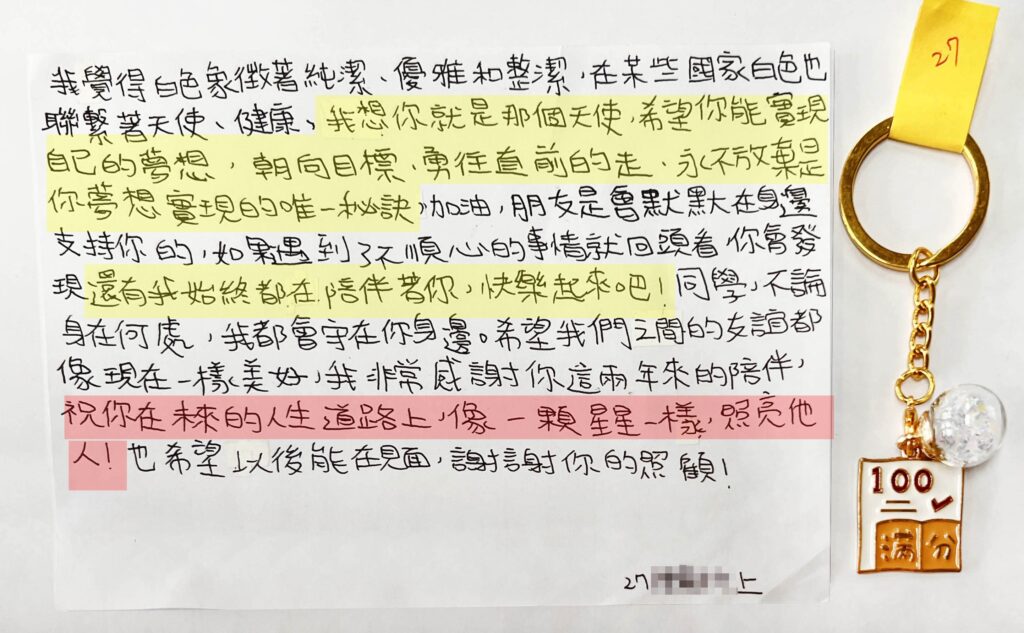 我覺得白色象徵著純潔、優雅和整潔,在某些國家白色也
聯繫著天使、健康、我想你就是那個天使,希望你能實現
自己的夢想,朝向目標、勇往直前的走、永不放棄是
你夢想實現的唯一秘訣,加油,朋友是會默默在身邊
支持你的,如果遇到了不順心的事情就回頭看,你會發
現還有我始終都在陪伴著你,快樂起來吧!同學,不論
身在何處,我都會守在你身邊。希望我們之間的友誼都
像現在一樣美好,我非常感謝你這兩年來的陪伴,
祝你在未來的人生道路上,像一顆星星一樣,照亮他
人!也希望以後能在見面,謝謝你的照顧!
27 上
27
100
满分